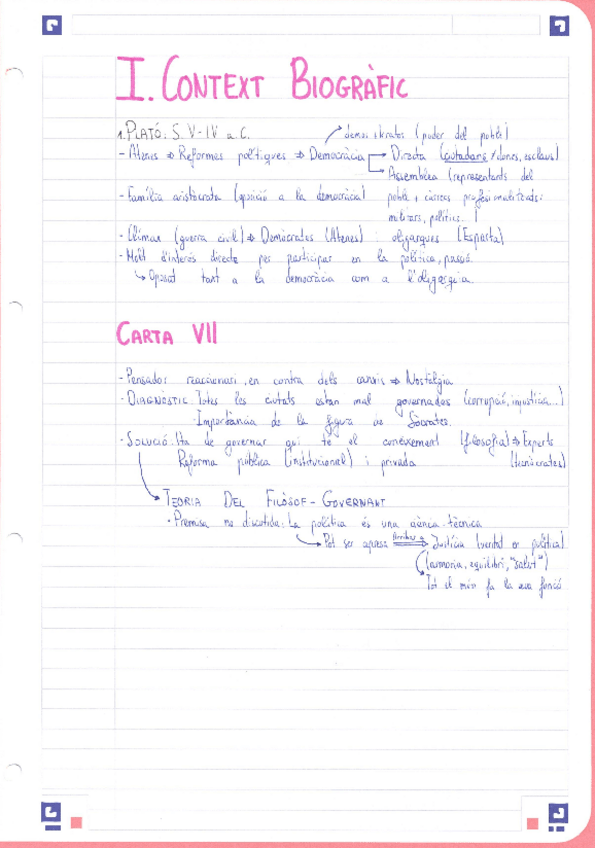 I. CONTEXT BIOGRÀFIC
1. PLATÓ: S. V-IV a.C.
demos kratos (poder del poble)
- Atenes ⇒ Reformes polítiques ⇒ Democràcia → Directa (ciutadans ≠ dones, esclaus)
→ Assemblea (representants del
poble + càrrecs professionalitzats:
militars, polítics...)
- Família aristòcrata (oposició a la democràcia)
- Clima (guerra civil) ⇒ Demòcrates (Atenes) i oligarques (Esparta)
- Molt d'interés directe per participar en la política, passió.
↳ Oposat tant a la democràcia com a l'oligarquia.
CARTA VII
- Pensador reaccionari, en contra dels canvis ⇒ Nostàlgia
- DIAGNÒSTIC: Totes les ciutats estan mal governades (corrupció, injustícia...)
· Importància de la figura de Sòcrates.
- SOLUCIÓ: Ha de governar qui té el coneixement (filosofia) ⇒ Experts
Reforma pública (institucional) i privada (tecnòcrates)
TEORIA DEL FILÒSOF-GOVERNANT
· Premisa no discutida: La política és una ciència-tècnica
↳ Pot ser apresa ⇒ Justícia (virtut política)
(armonia, equilibri, "salut")
Tot el món fa la seua funció